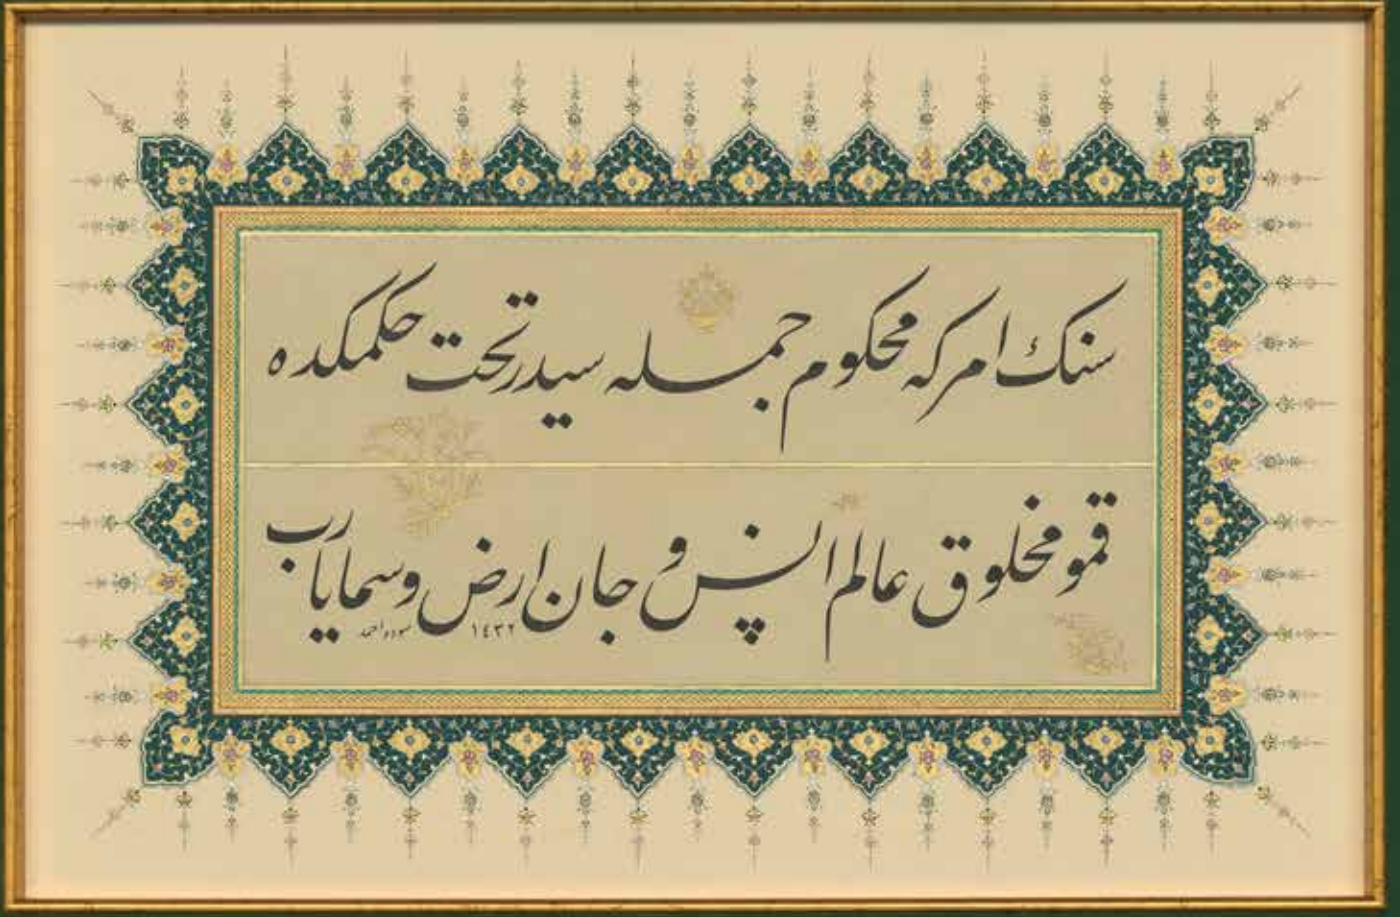 سنك امركه محكوم جمله سيدر تحت حكمكده
قمو مخلوق عالم انس و جان ارض و سما يا رب
١٤٣٢ احمد